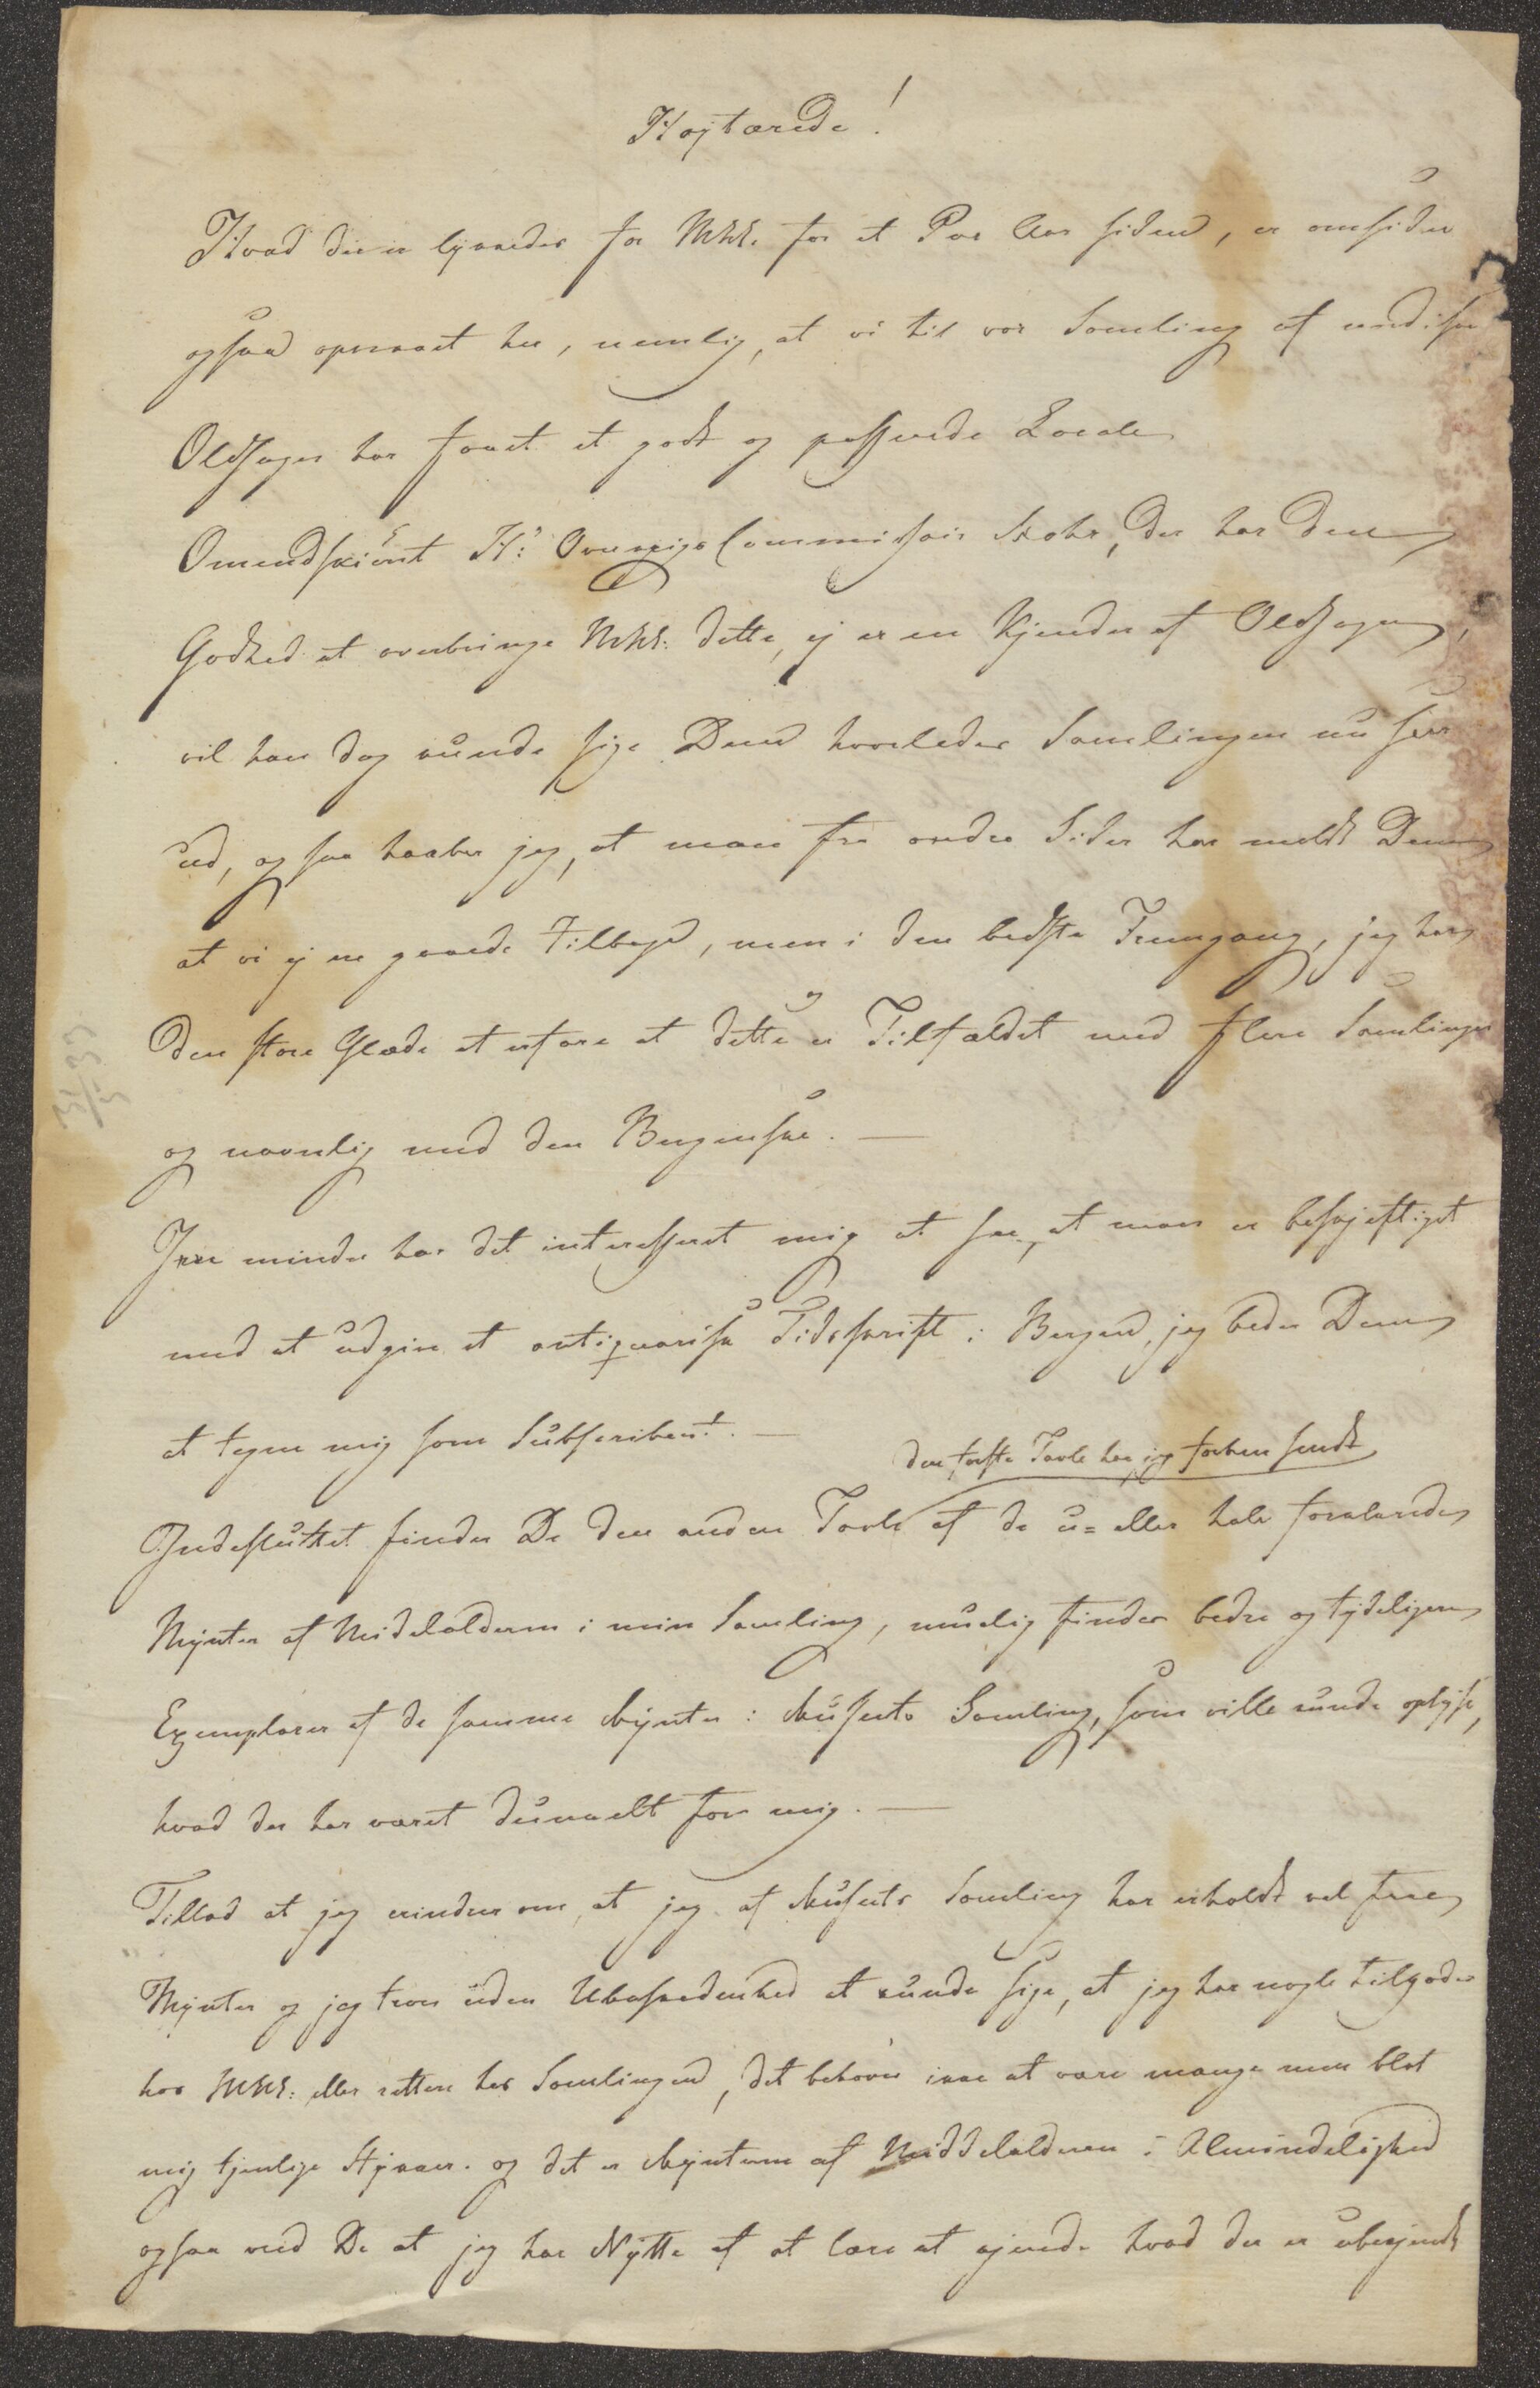 Højtærede!
Hvad der er lykkedes for MHH. for et Par Aar siden, er omsider
ogsaa opnaaet her, nemlig, at vi til vor Samling af nordiske
Oldsager har faaet et godt og passende Locale
Omendskiønt Hr: Commissair Stohr, der har den
Godhed at overbringe MHH: dette, ej er en Kjender af Oldsager,
vil han dog kunde sige Dem hvorledes Samlingen nu seer
ud, og saa haaber jeg, at man fra andre Sider har meldt Dem
at vi ej er gaaede tilbage, men i den bedste Fremgang, jeg har
den store Glæde at erfare at dette og er Tilfældet med flere Samlinger
og navnlig med den Bergenske. —
Ikke mindre har det interesseret mig at see, at man er beskjæftiget
med at udgive et antiqvarisk Tidsskrift i Bergen, jeg beder Dem
at tegne mig som Subscribent. —
den første Tavle har jeg forhen sendt
Indesluttet finder De den anden Tavle af de u= eller halv forklarede
Mynter af Middelalderen i min Samling, muelig findes bedre og tydeligere
Exemplarer af de samme Mynter i Museets Samling, som ville kunde oplyse,
hvad der har været dunkelt for mig. —
Tillad at jeg erindrer om, at jeg af Museets Samling har erholdt vel faae
Mynter og jeg troer uden Ubeskedenhed at kunde sige, at jeg har nogle tilgode
hos MHH: eller rettere hos Samlingen, det behøver ikke at være mange men blot
mig tjenlige Stykker. og det er Mynterne af Middelalderen i Almindelighed
ogsaa veed De at jeg har Nytte af at lære at kjende hvad der er ubekjendt